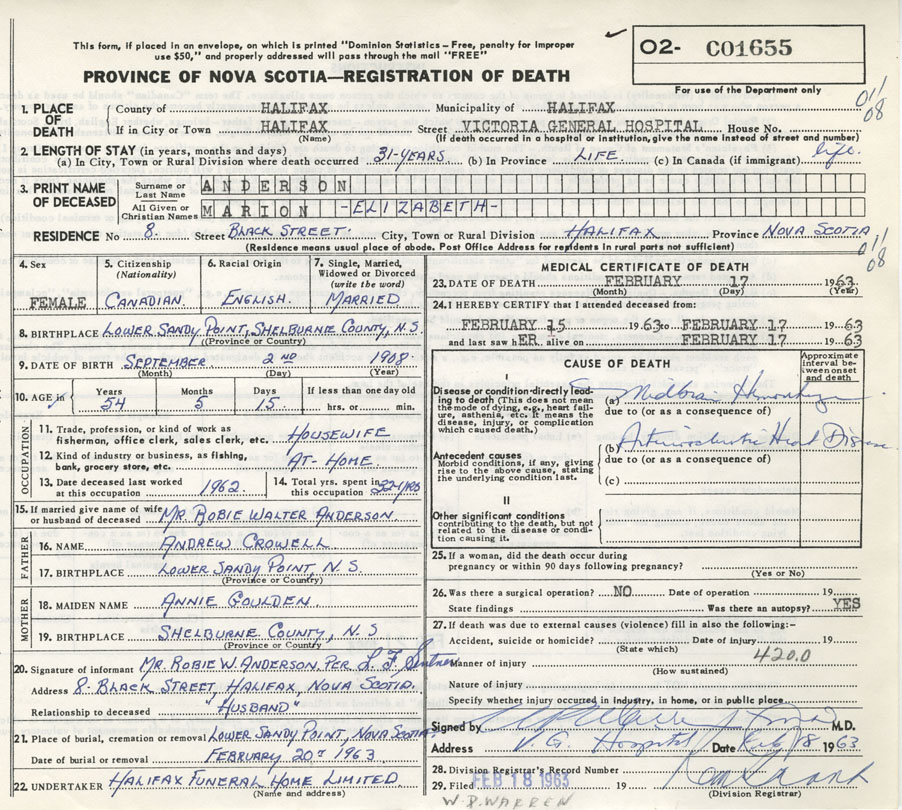 This form, if placed in an envelope, on which is printed "Dominion Statistics—Free, penalty for improper
use $50," and properly addressed will pass through the mail "FREE"
O2- C01655
PROVINCE OF NOVA SCOTIA—REGISTRATION OF DEATH
For use of the Department only
011
08
1. PLACE OF DEATH
County of HALIFAX Municipality of HALIFAX
If in City or Town HALIFAX Street VICTORIA GENERAL HOSPITAL House No.
(Name) (If death occurred in a hospital or institution, give the name instead of street and number)
2. LENGTH OF STAY (in years, months and days)
(a) In City, Town or Rural Division where death occurred 31-YEARS (b) In Province LIFE. (c) In Canada (if immigrant) life.
3. PRINT NAME OF DECEASED
Surname or Last Name ANDERSON
All Given or Christian Names MARION -ELIZABETH-
RESIDENCE No 8. Street BLACK STREET. City, Town or Rural Division HALIFAX Province NOVA SCOTIA
(Residence means usual place of abode. Post Office Address for residents in rural parts not sufficient)
011
08
4. Sex FEMALE
5. Citizenship (Nationality) CANADIAN.
6. Racial Origin ENGLISH.
7. Single, Married, Widowed or Divorced (write the word) MARRIED
8. BIRTHPLACE LOWER SANDY POINT, SHELBURNE COUNTY, N.S.
(Province or Country)
9. DATE OF BIRTH SEPTEMBER 2ND 1908.
(Month) (Day) (Year)
10. AGE in Years 54 Months 5 Days 15. If less than one day old hrs. or min.
OCCUPATION
11. Trade, profession, or kind of work as fisherman, office clerk, sales clerk, etc. HOUSEWIFE
12. Kind of industry or business, as fishing, bank, grocery store, etc. AT-HOME.
13. Date deceased last worked at this occupation 1962.
14. Total yrs. spent in this occupation 32-YRS
15. If married give name of wife or husband of deceased MR. ROBIE WALTER ANDERSON
FATHER
16. NAME ANDREW CROWELL
17. BIRTHPLACE LOWER SANDY POINT, N.S.
(Province or Country)
MOTHER
18. MAIDEN NAME ANNIE GOULDEN.
19. BIRTHPLACE SHELBURNE COUNTY, N.S
(Province or Country
20. Signature of informant MR. ROBIE W. ANDERSON PER L. F.
Address 8. BLACK STREET, HALIFAX, NOVA SCOTIA.
Relationship to deceased "HUSBAND"
21. Place of burial, cremation or removal LOWER SANDY POINT, NOVA SCOTIA
Date of burial or removal FEBRUARY 20T 1963
22. UNDERTAKER HALIFAX FUNERAL HOME LIMITED
(Name and address)
MEDICAL CERTIFICATE OF DEATH
23. DATE OF DEATH FEBRUARY 17 1963
(Month) (Day) (Year)
24. I HEREBY CERTIFY that I attended deceased from:
FEBRUARY 15 1963 to FEBRUARY 17 1963
and last saw hER. alive on FEBRUARY 17 1963
CAUSE OF DEATH
Approximate interval between onset and death
I
Disease or condition directly leading to death (This does not mean the mode of dying, e.g., heart failure, asthenia, etc. It means the disease, injury, or complication which caused death.)
(a) Midbrain Hemorrhage
due to (or as a consequence of)
Antecedent causes
Morbid conditions, if any, giving rise to the above cause, stating the underlying condition last.
(b) Arteriosclerotic Heart Disease
due to (or as a consequence of)
(c)
II
Other significant conditions
contributing to the death, but not related to the disease or condition causing it.
25. If a woman, did the death occur during pregnancy or within 90 days following pregnancy?
(Yes or No)
26. Was there a surgical operation? NO Date of operation 19
State findings Was there an autopsy? YES
27. If death was due to external causes (violence) fill in also the following:-
Accident, suicide or homicide? Date of injury 19
(State which)
420.0
Manner of injury
(How sustained)
Nature of injury
Specify whether injury occurred in industry, in home, or in public place
Signed by M.D.
Address V. G. Hospital Date Feb 18 1963
28. Division Registrar's Record Number
29. Filed FEB 18 1963 19
(Division Registrar)
W.P. WARREN